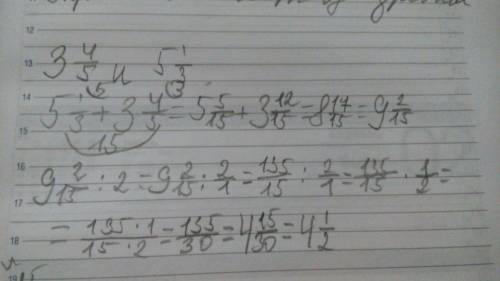 12
13
3 4/5 и 5 1/3
14
5 1/3 + 3 4/5 = 5 5/15 + 3 12/15 = 8 17/15 = 9 2/15
15
15
16
9 2/15 : 2 = 9 2/15 : 2/1 = 135/15 : 2/1 = 135/15 · 1/2 =
17
= 135·1/15·2 = 135/30 = 4 15/30 = 4 1/2
18
19